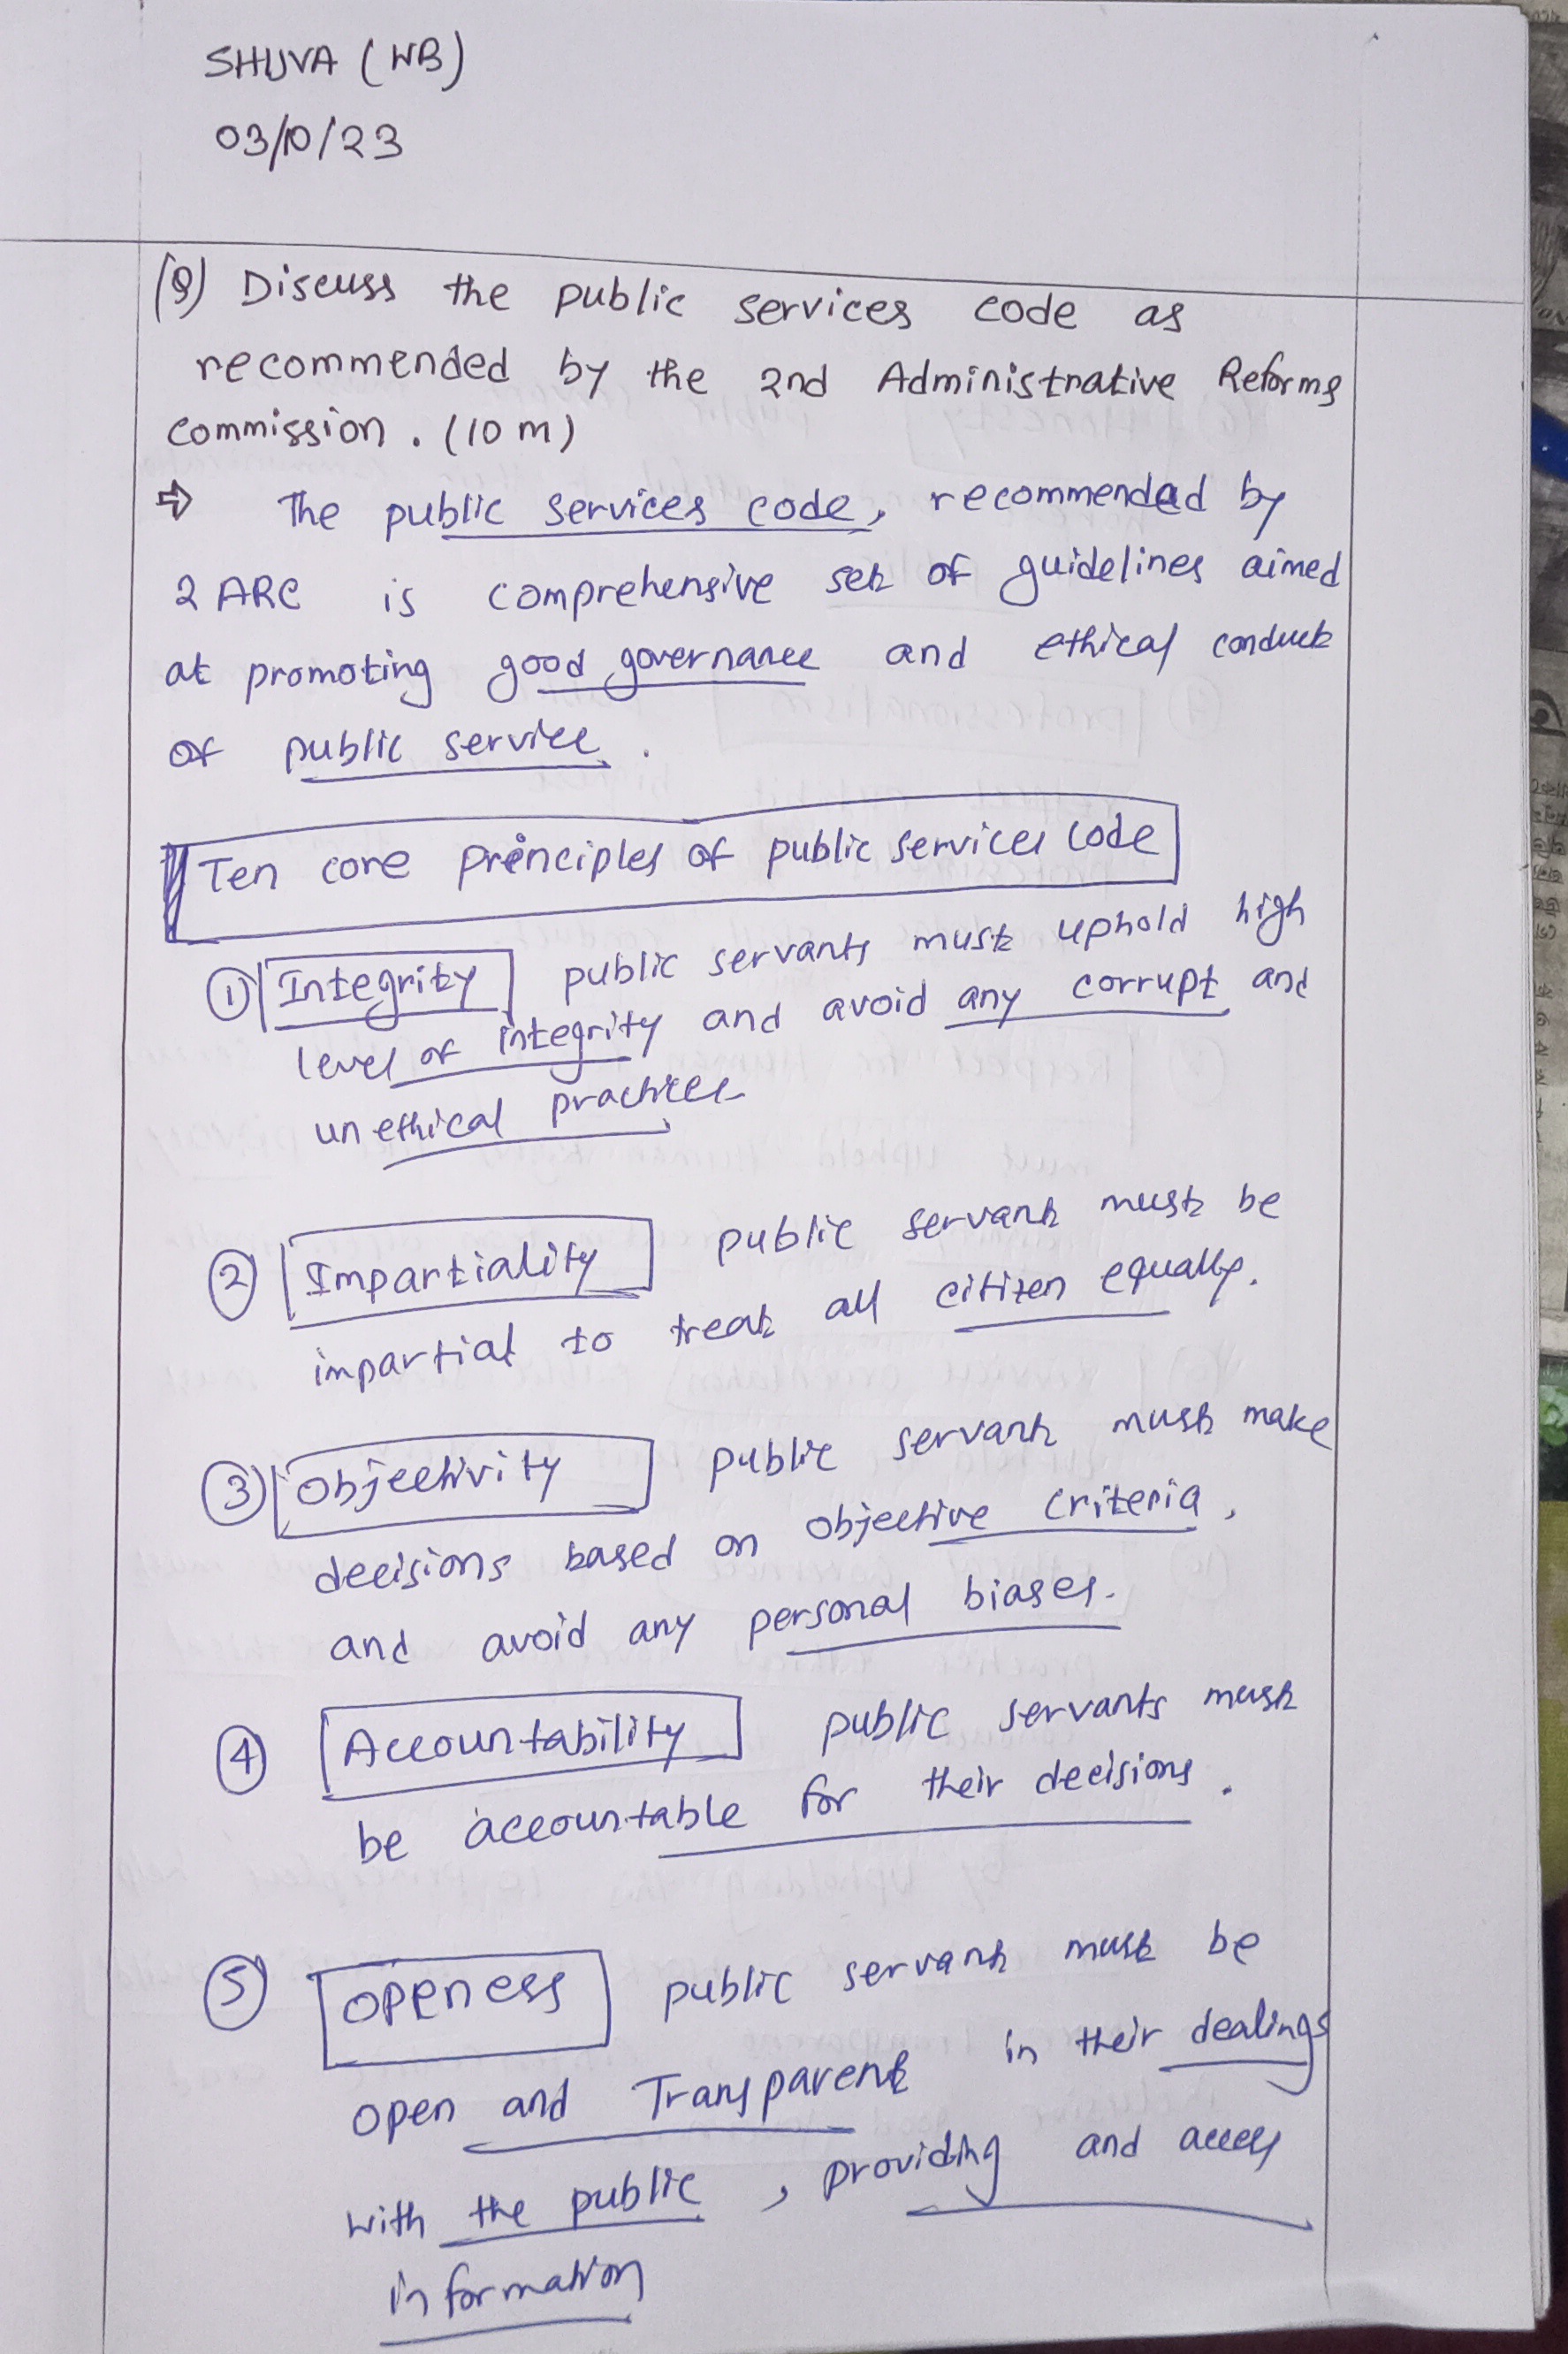 SHUVA (WB)
03/10/23
(Q) Discuss the public services code as
recommended by the 2nd Administrative Reforms
Commission. (10 m)
⇒ The public services code, recommended by
2 ARC is comprehensive set of guidelines aimed
at promoting good governance and ethical conduct
of public service.
Ten core principles of public services code
① Integrity public servants must uphold high
level of integrity and avoid any corrupt and
unethical practices
② Impartiality public servant must be
impartial to treat all citizen equally.
③ Objectivity public servant must make
decisions based on objective criteria,
and avoid any personal biases.
④ Accountability public servants must
be accountable for their decisions.
⑤ Openess public servant must be
open and Transparent in their dealings
with the public, providing and access
information